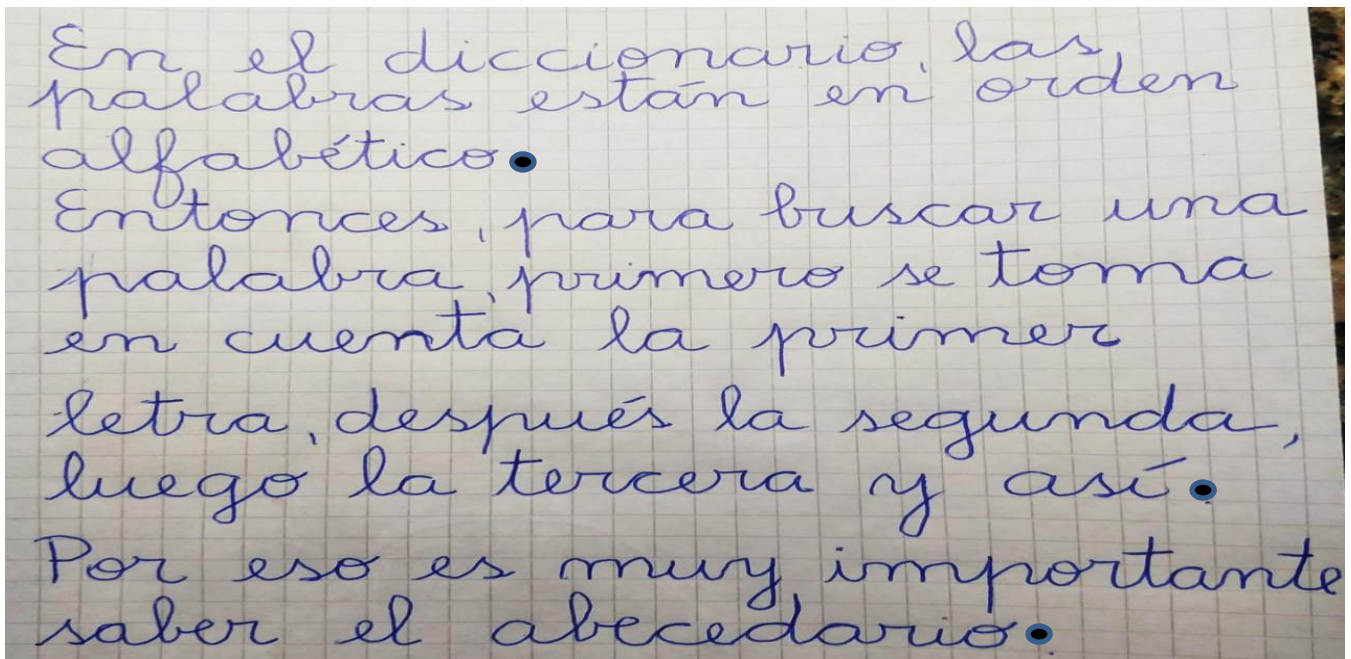 En el diccionario, las
palabras están en orden
alfabético.
Entonces, para buscar una
palabra, primero se toma
en cuenta la primer
letra, después la segunda,
luego la tercera y así.
Por eso es muy importante
saber el abecedario.